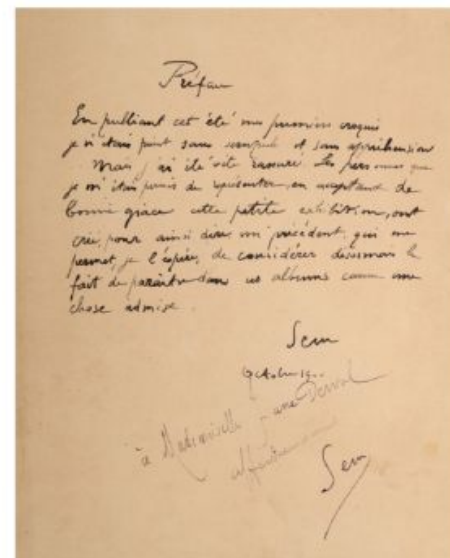 Préface
En publiant cet été mes premiers croquis
je n'étais point sans scrupule et sans appréhension
Mais j'ai été vite rassuré. Les personnes que
je m'étais permis de représenter, en acceptant de
bonne grâce cette petite exhibition, ont
créé, pour ainsi dire, un précédent, qui me
permet, je l'espère, de considérer désormais le
fait de paraître dans ces albums comme une
chose admise.
Sem
Octobre 19
à Mademoiselle Derval
Sem